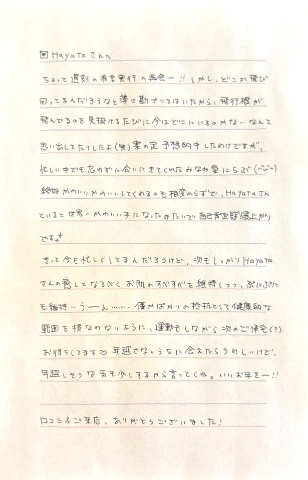 Hayataさんへ
ちょっと遅刻の有言実行の再会ー!! しかし、どこか飛び
回ってるんだろうなと薄々勘づいてはいたから、飛行機が
飛んでるのを見掛けるたびに今はどこにいるのかなーなんて
思い出してたりしたよ(笑) 案の定 予想的中したわけですが、
忙しい中でも忘れずに会いにきてくれたみなみ愛にらぶ
終始かわいいかわいいしてくれるのも相変わらずで、Hayataさん
といると世界一かわいい子になったみたいで自己肯定感爆上がり
です
きっと今も忙しくしてるんだろうけど、次もしっかりHayata
さんの癒しとなるべく お肌のすべすべも維持しつつ、ぷにぷに
も維持…うーん…… 僅かばかりの抵抗として健康的な
範囲を損なわないように、運動もしながら次のご帰宅(?)
お待ちしてます♡ 年越さないうちに会えたらうれしいけど、
年越しそうな気も少しするから言っておくね。いいお年をー!!
口コミ&ご来店、ありがとうございました!